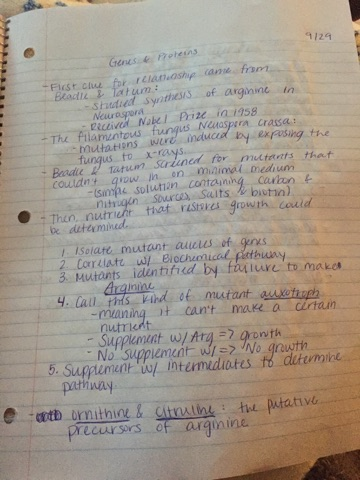 9/29
Genes & Proteins
- First clue for relationship came from
Beadle & Tatum:
- Studied synthesis of arginine in
Neurospora
- Received Nobel Prize in 1958
- The filamentous fungus Neurospora crassa:
- mutations were induced by exposing the
fungus to x-rays.
- Beadle & Tatum screened for mutants that
couldn't grow in on minimal medium
- (simple solution containing carbon &
nitrogen sources, salts & biotin)
- Then, nutrient that restores growth could
be determined.
1. Isolate mutant alleles of genes
2. Correlate w/ Biochemical pathway
3. Mutants identified by failure to make
Arginine
4. Call this kind of mutant auxotroph
- meaning it can't make a certain
nutrient
- Supplement w/ Arg => growth
- No Supplement w/ => No growth
5. Supplement w/ intermediates to determine
pathway
- ornithine & citruline: the putative
precursors of arginine